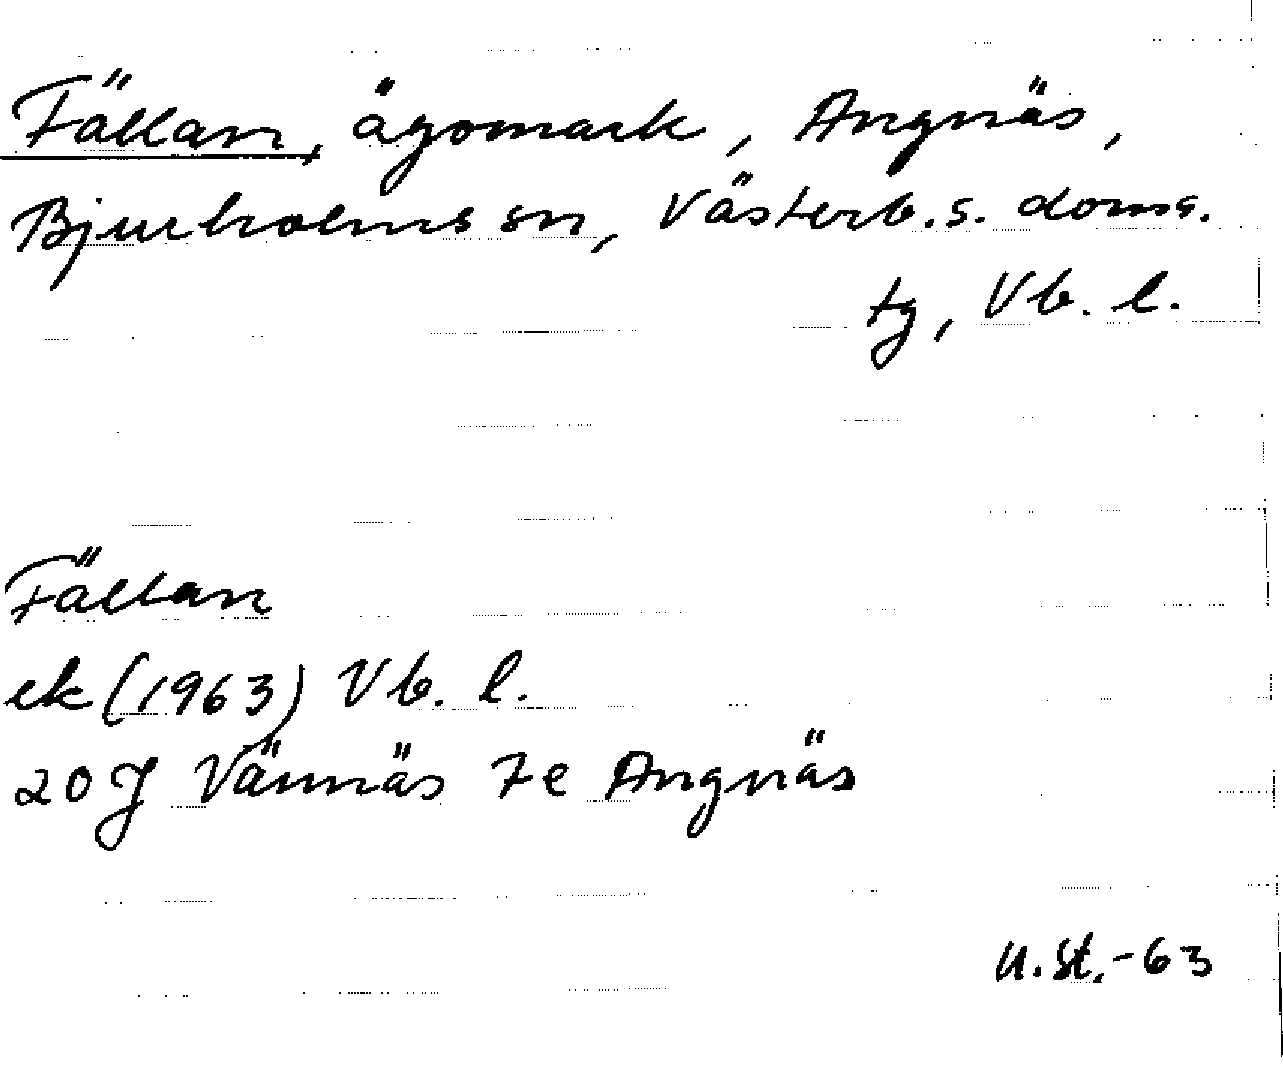 Fällan, ägomark, Angnäs,
Bjurholms sn, Västerb. s. doms.
tg, Vb. l.
Fällan
ek (1963) Vb. l.
20J Vännäs 7e Angnäs
U.St.-63